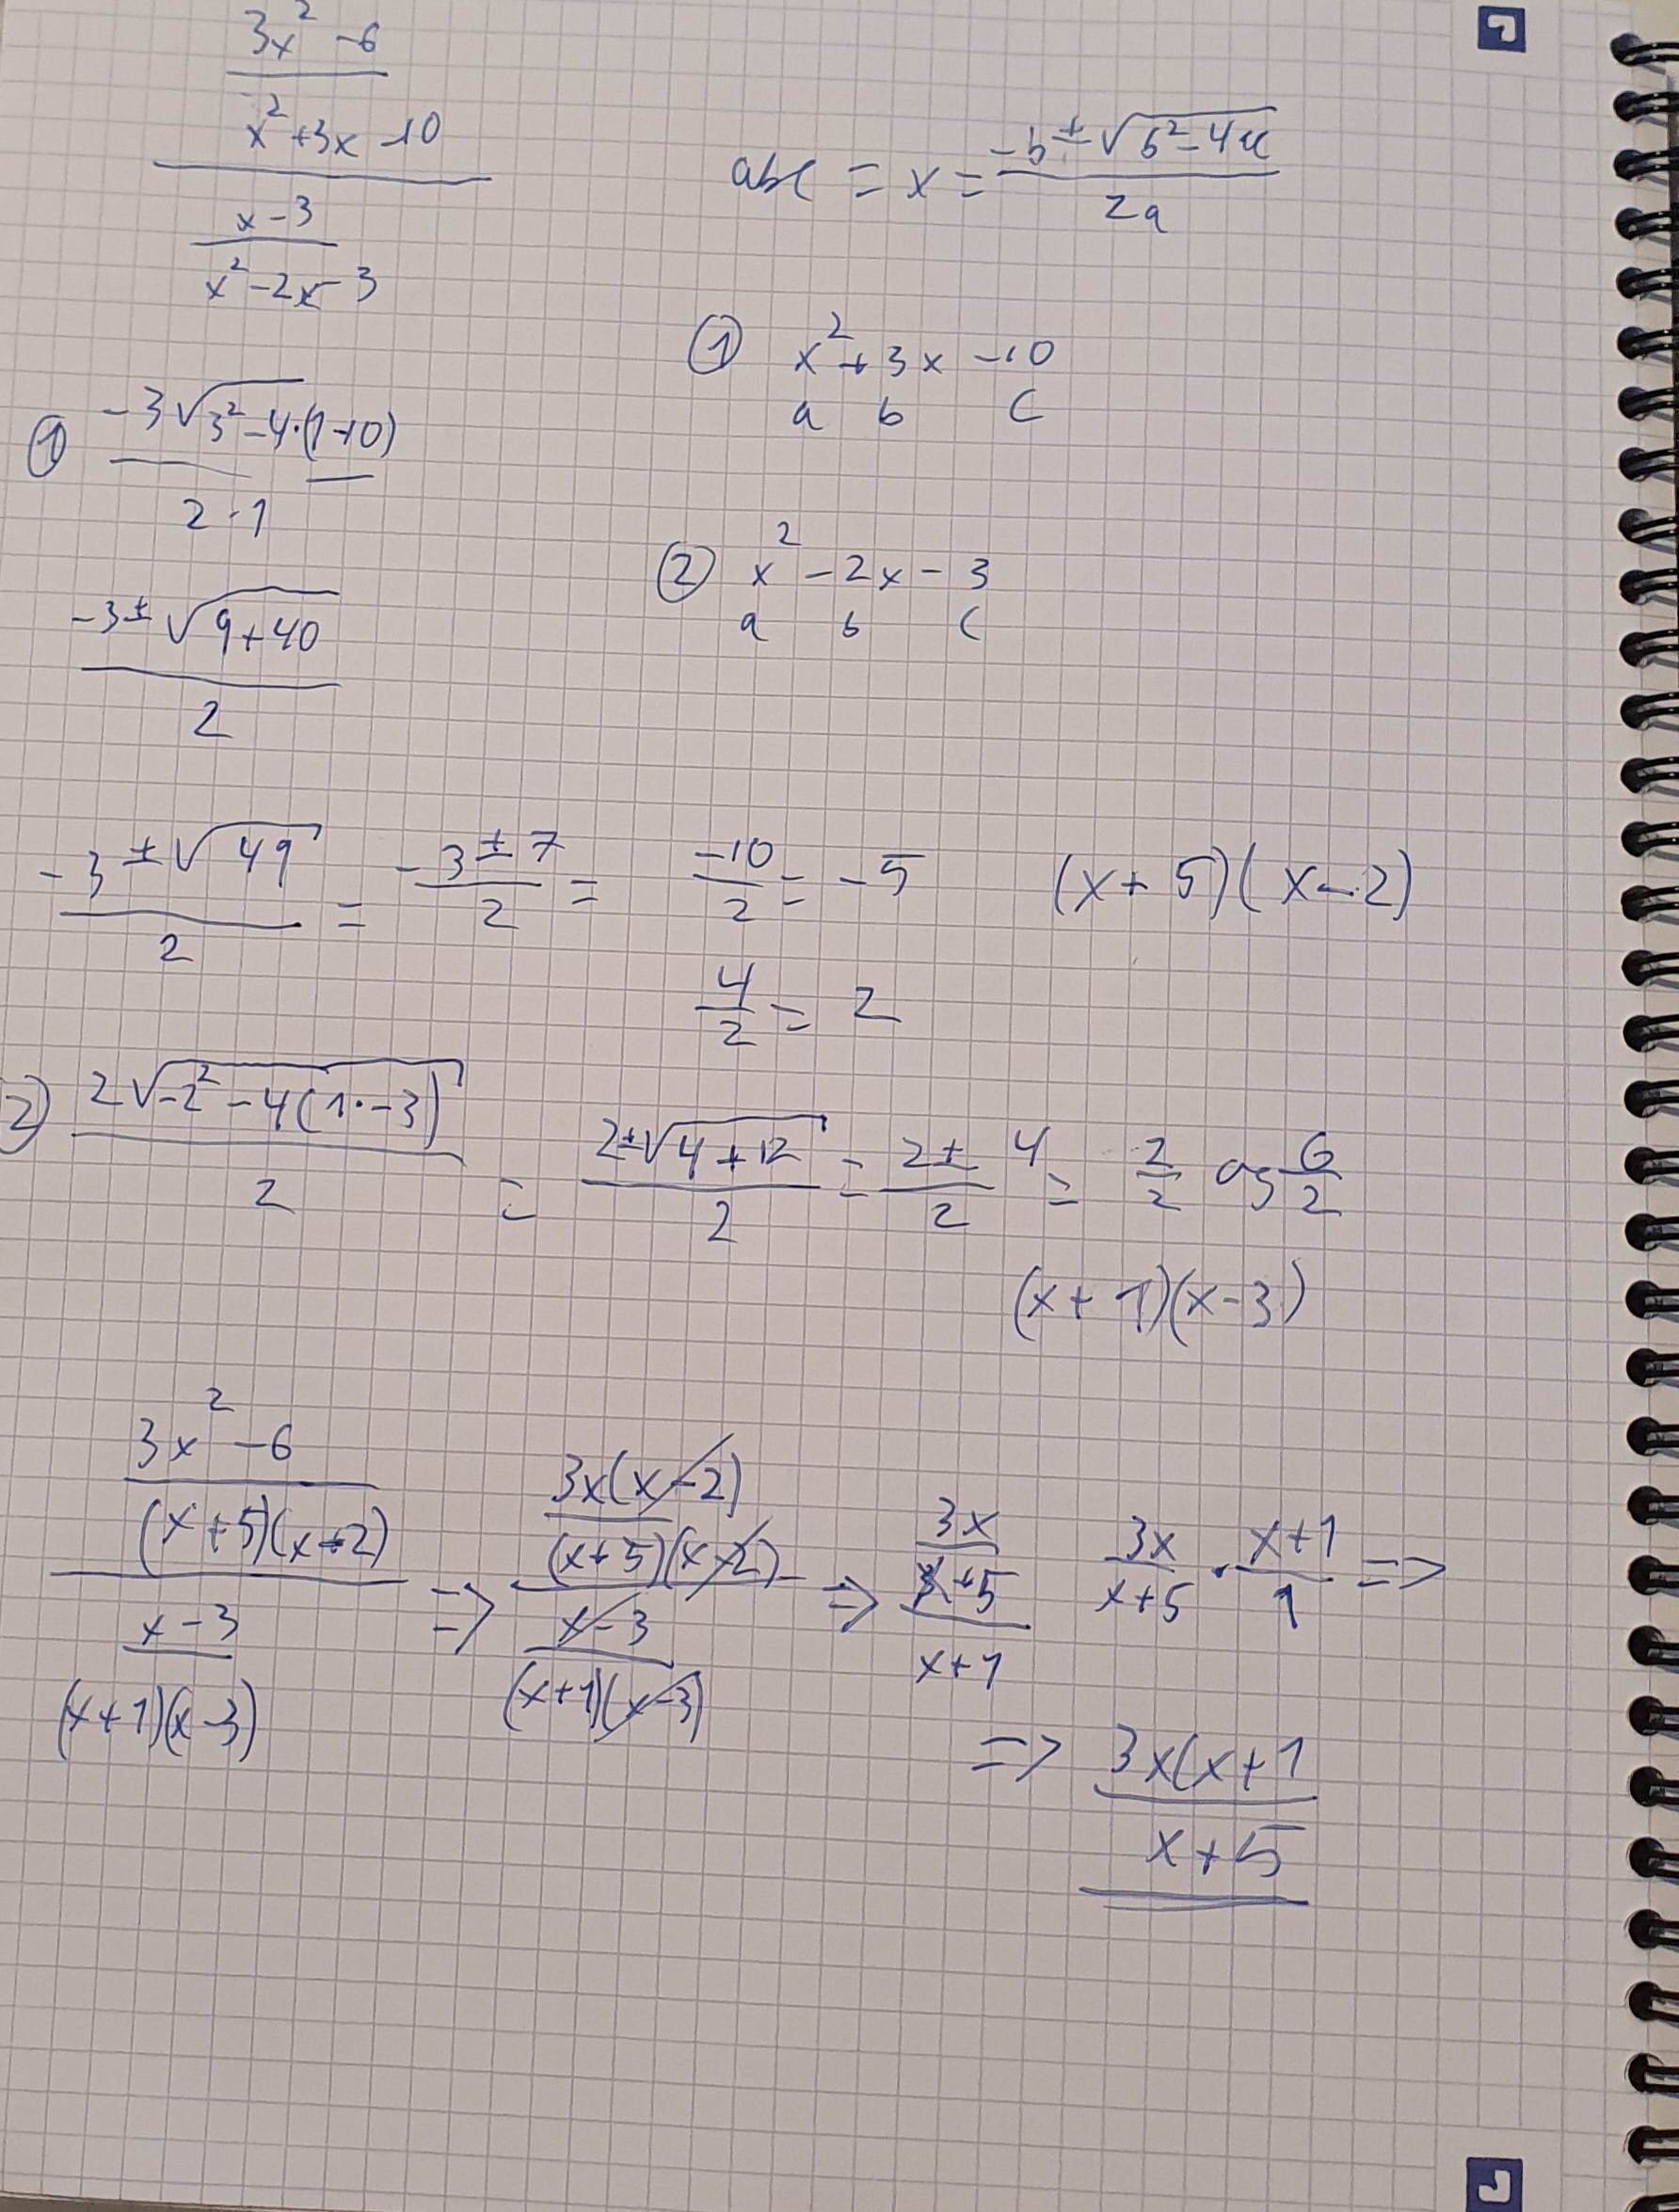 3x² - 6
x² + 3x - 10
x - 3
x² - 2x - 3
abc = x = -b ± √b² - 4ac
2a
① x² + 3x - 10
a b c
① -3 √3² - 4·(1-10)
2·1
② x² - 2x - 3
a b c
-3 ± √9 + 40
2
-3 ± √49 / 2 = -3 ± 7 / 2 = -10/2 = -5 (x + 5)(x - 2)
4/2 = 2
2) 2 √-2² - 4(1·-3) / 2 = 2 ± √4 + 12 / 2 = 2 ± 4 / 2 = 2/2 og 6/2
(x + 1)(x - 3)
3x² - 6
(x + 5)(x + 2)
x - 3
(x + 1)(x - 3)
=> 3x(x - 2)
(x + 5)(x - 2)
x - 3
(x + 1)(x - 3)
=> 3x
x + 5
x + 1
3x / x + 5 · x + 1 / 1 =>
=> 3x(x + 1
x + 5